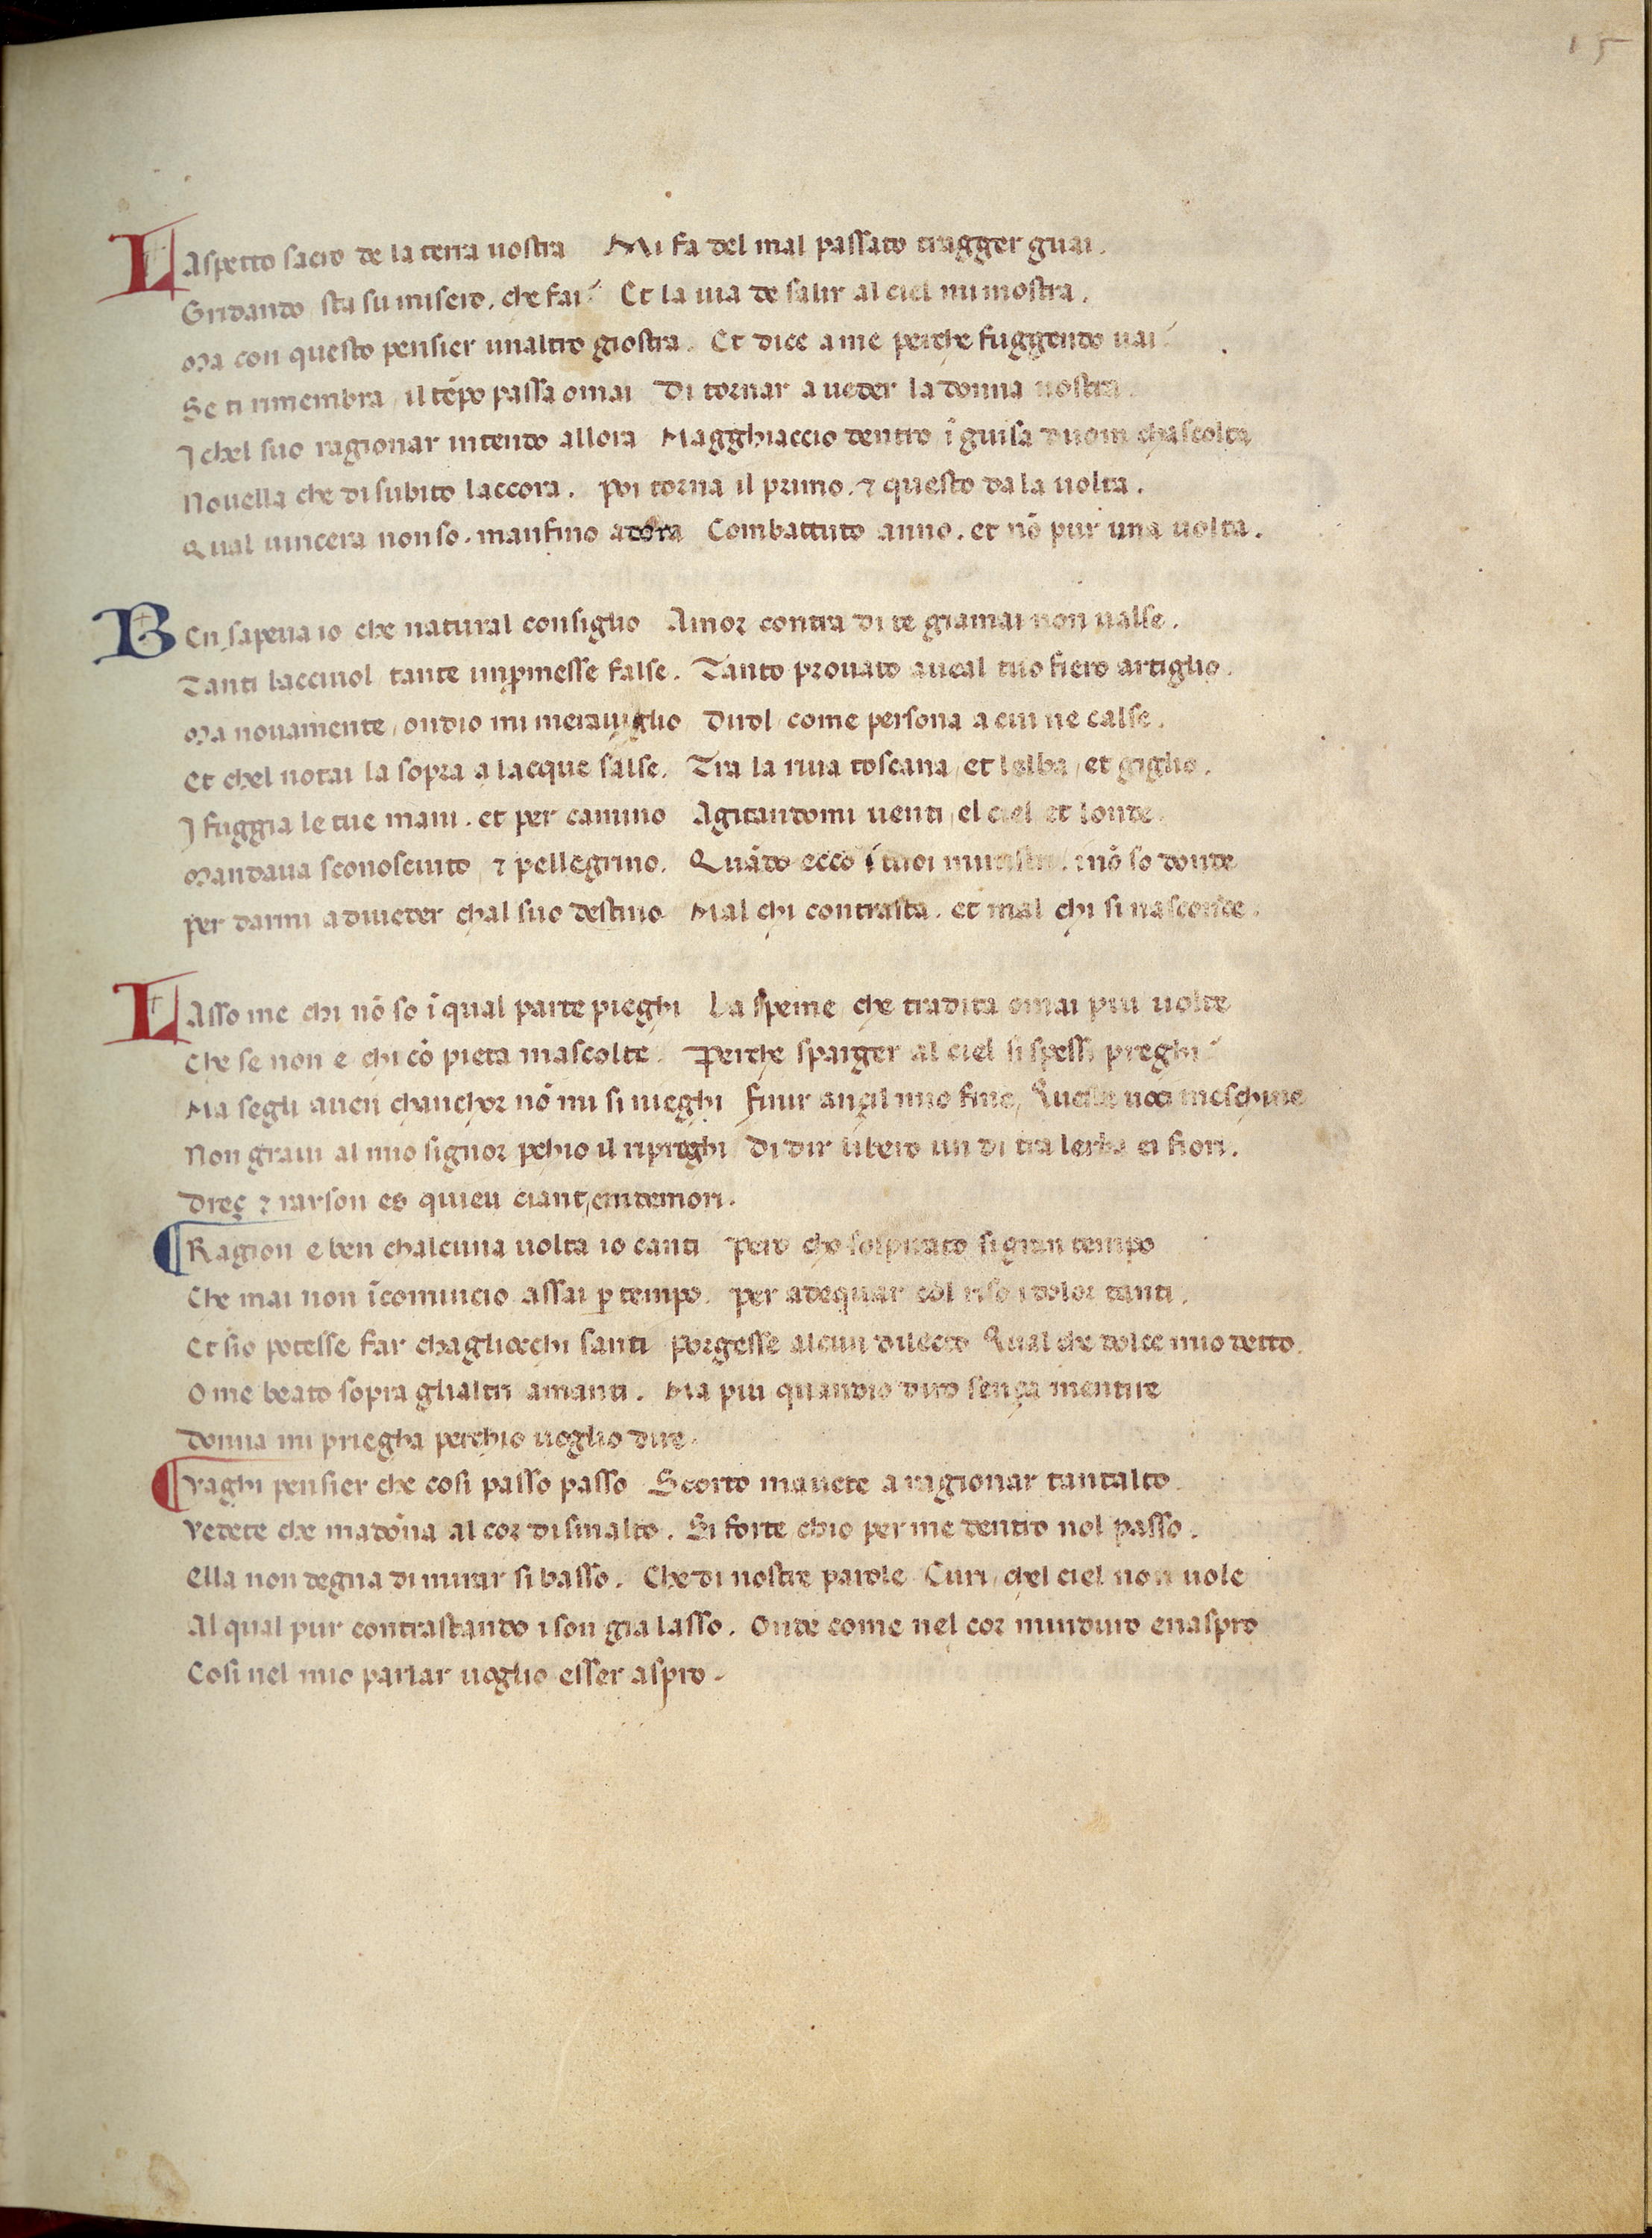 15
LAspecto sacro de la terra uostra Mi fa del mal passato tragger guai.
Gridando sta su misero. che fai? Et la uia de salir al ciel mi mostra.
Ma con questo pensier unaltro giostra. Et dice a me perche fuggendo uai?
Se ti rimembra / il tēpo passa omai Di tornar a ueder la donna nostra.
I chel suo ragionar intendo allora Magghiaccio dentro ī guisa duom chascolta
Nouella che di subito laccora. Poi torna il primo. ⁊ questo da la uolta.
Qual uincera non so. manfino adora Combattuto anno. et nō pur una uolta.
BEn sapeua io che natural consiglio Amor contra di te giamai non ualse.
Tanti lacciuol / tante impromesse false. Tanto prouato aueal tuo fiero artiglio.
Ma nouamente / ondio mi merauiglio Dirol / come persona a cui ne calse.
Et chel notai la sopra a lacque salse. Tra la riua toscana / et lelba / et giglio.
I fuggia le tue mani. et per camino Agitandomi uenti / el ciel et londe.
Mandaua sconosciuto / ⁊ pellegrino. Quādo ecco i tuoi ministri / i nō so donde
Per darmi a diueder chal suo destino Mal chi contrasta. et mal chi si nasconde.
LAsso me chi nō so ī qual parte pieghi La speme / che tradita omai piu uolte
Che se non e chi cō pieta mascolte. Perche sparger al ciel si spessi preghi?
Ma segli auen chanchor nō mi si nieghi Finir anzil mio fine / Queste uoci meschine
Non graui al mio signor pchio il ripreghi Di dir libero un di tra lerba ei fiori.
Dreç ⁊ rayson es quieu ciant / emdemori.
Ragion e ben chalcuna uolta io canti Pero cho sospirato si gran tempo
Che mai non īcomincio assai p tempo. Per adequar col riso i dolor tanti.
Et sio potesse far chagliocchi santi Porgesse alcun dilecto Qual che dolce mio detto.
O me beato sopra glialtri amanti. Ma piu quandio diro sença mentire
Donna mi priegha perchio uoglio dire.
Vaghi pensier che cosi passo passo Scorto mauete a ragionar tantalto.
Vedete che madōna al cor di smalto. Si forte chio per me dentro nol passo.
Ella non degna di mirar si basso. Che di nostre parole Curi / chel ciel non uole
Al qual pur contrastando i son gia lasso. Onde come nel cor minduro enaspro
Cosi nel mio parlar uoglio esser aspro.